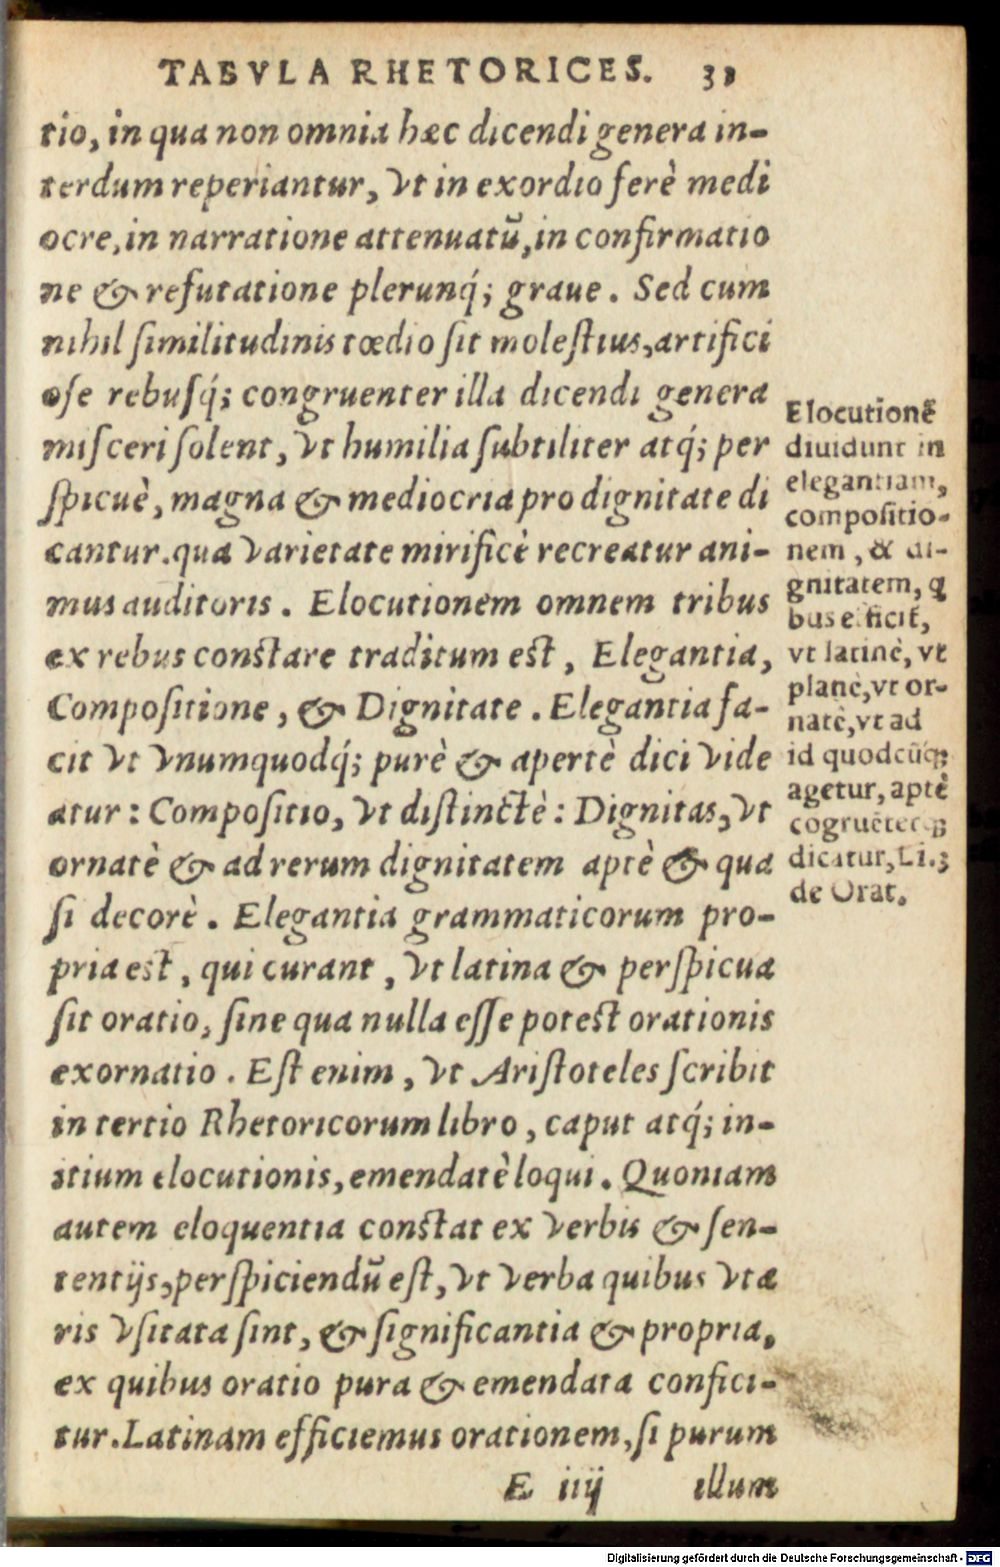 TABVLA RHETORICES. 39
tio, in qua non omnia hæc dicendi genera in-
terdum reperiantur, vt in exordio ferè medi
ocre, in narratione attenuatũ, in confirmatio
ne & refutatione plerunq́; graue. Sed cum
nihil similitudinis tœdio sit molestius, artifici
ose rebusq́; congruenter illa dicendi genera
misceri solent, vt humilia subtiliter atq́; per
spicuè, magna & mediocria pro dignitate di
cantur. qua varietate mirificè recreatur ani-
mus auditoris. Elocutionem omnem tribus
ex rebus constare traditum est, Elegantia,
Compositione, & Dignitate. Elegantia fa-
cit vt vnumquodq́; purè & apertè dici vide
atur: Compositio, vt distinctè: Dignitas, vt
ornatè & ad rerum dignitatem aptè & qua
si decorè. Elegantia grammaticorum pro-
pria est, qui curant, vt latina & perspicua
sit oratio, sine qua nulla esse potest orationis
exornatio. Est enim, vt Aristoteles scribit
in tertio Rhetoricorum libro, caput atq́; in-
itium elocutionis, emendatè loqui. Quoniam
autem eloquentia constat ex verbis & sen-
tentijs, perspiciendũ est, vt verba quibus vta
ris vsitata sint, & significantia & propria,
ex quibus oratio pura & emendata confici-
tur. Latinam efficiemus orationem, si purum
E iiij illum
Elocutionẽ
diuidunt in
elegantiam,
compositio-
nem, & di-
gnitatem, q
bus efficit,
vt latinè, vt
planè, vt or-
natè, vt ad
id quodcũq;
agetur, aptè
cõgruẽterq;
dicatur, Li. 3
de Orat.
Digitalisierung gefördert durch die Deutsche Forschungsgemeinschaft - DFG